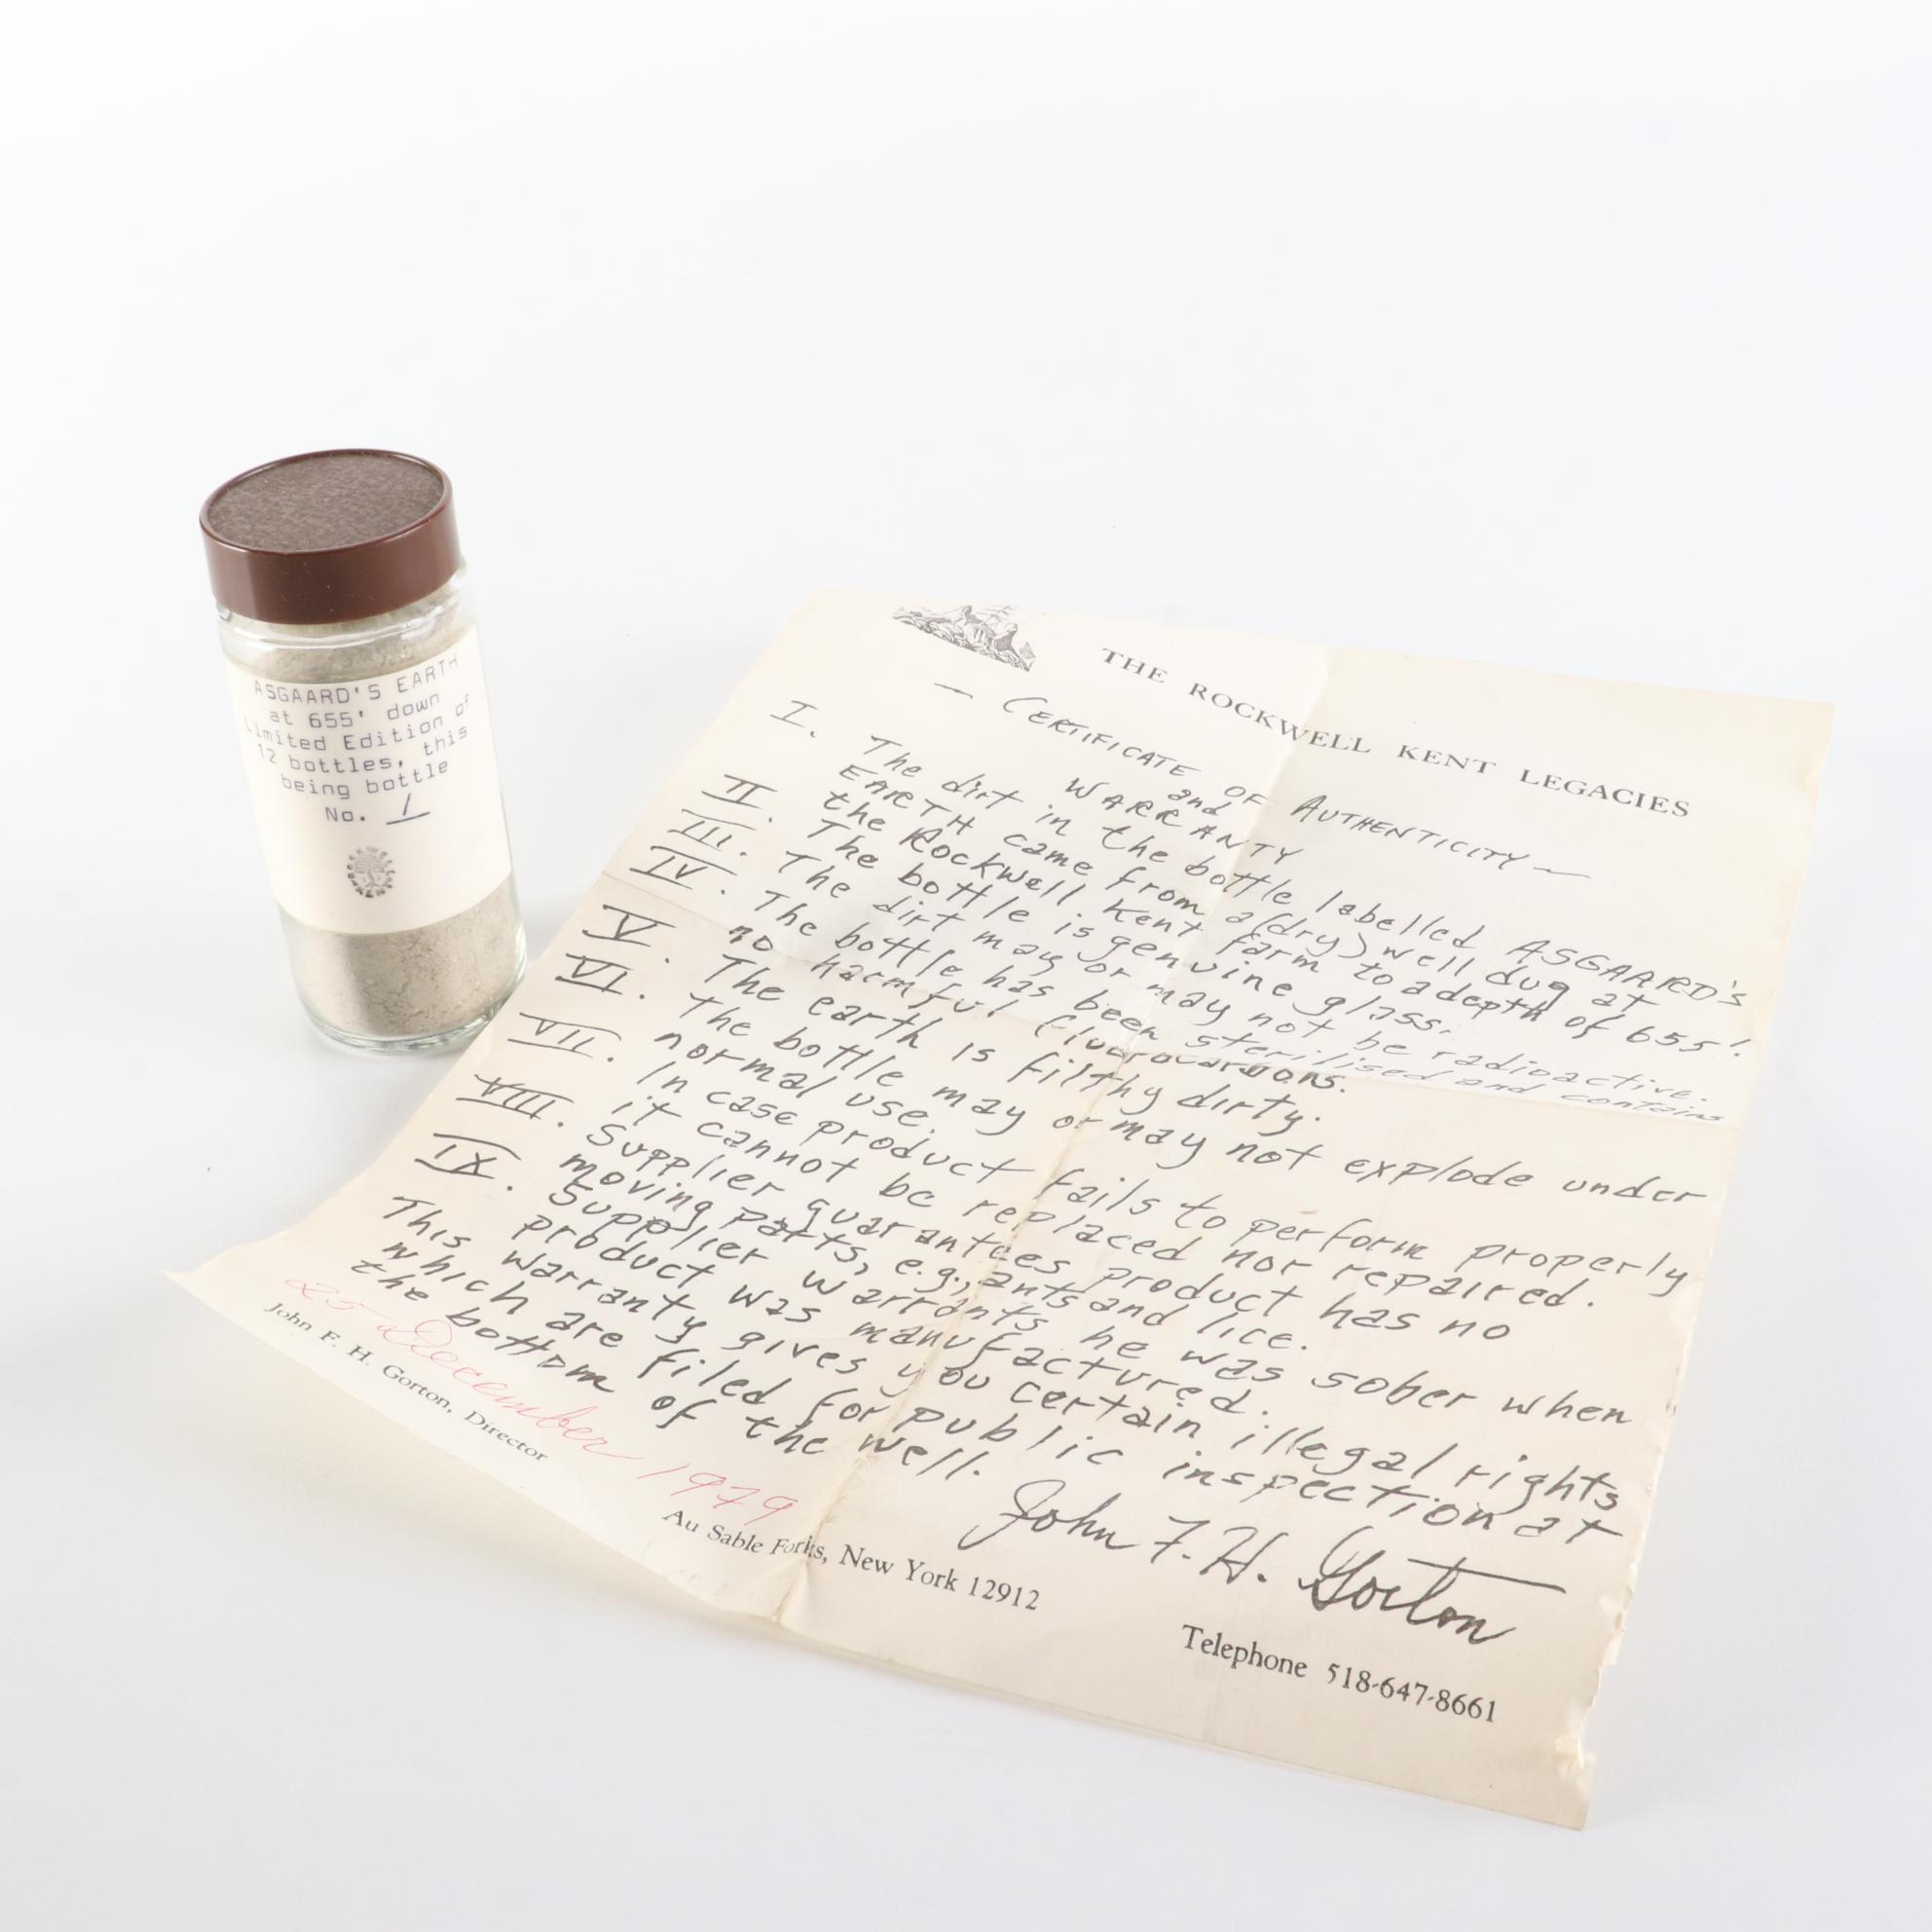 ASGAARD'S EARTH
at 655' down
Limited Edition of
12 bottles, this
being bottle
No. 1
THE ROCKWELL KENT LEGACIES
— CERTIFICATE OF AUTHENTICITY —
and
WARRANTY
I. The dirt in the bottle labelled ASGAARD'S
EARTH came from a (dry) well dug at
the Rockwell Kent farm to a depth of 655'.
II. The bottle is genuine glass.
III. The dirt may or may not be radioactive.
IV. The bottle has been sterilised and contains
no harmful fluorocarbons.
V. The earth is filthy dirty.
VI. The bottle may or may not explode under
normal use.
VII. In case product fails to perform properly
it cannot be replaced nor repaired.
VIII. Supplier guarantees product has no
moving parts, e.g., ants and lice.
IX. Supplier warrants he was sober when
product was manufactured.
This warranty gives you certain illegal rights
which are filed for public inspection at
the bottom of the well.
John F. H. Gorton
25 December 1979
John F. H. Gorton, Director
Au Sable Forks, New York 12912
Telephone 518-647-8661